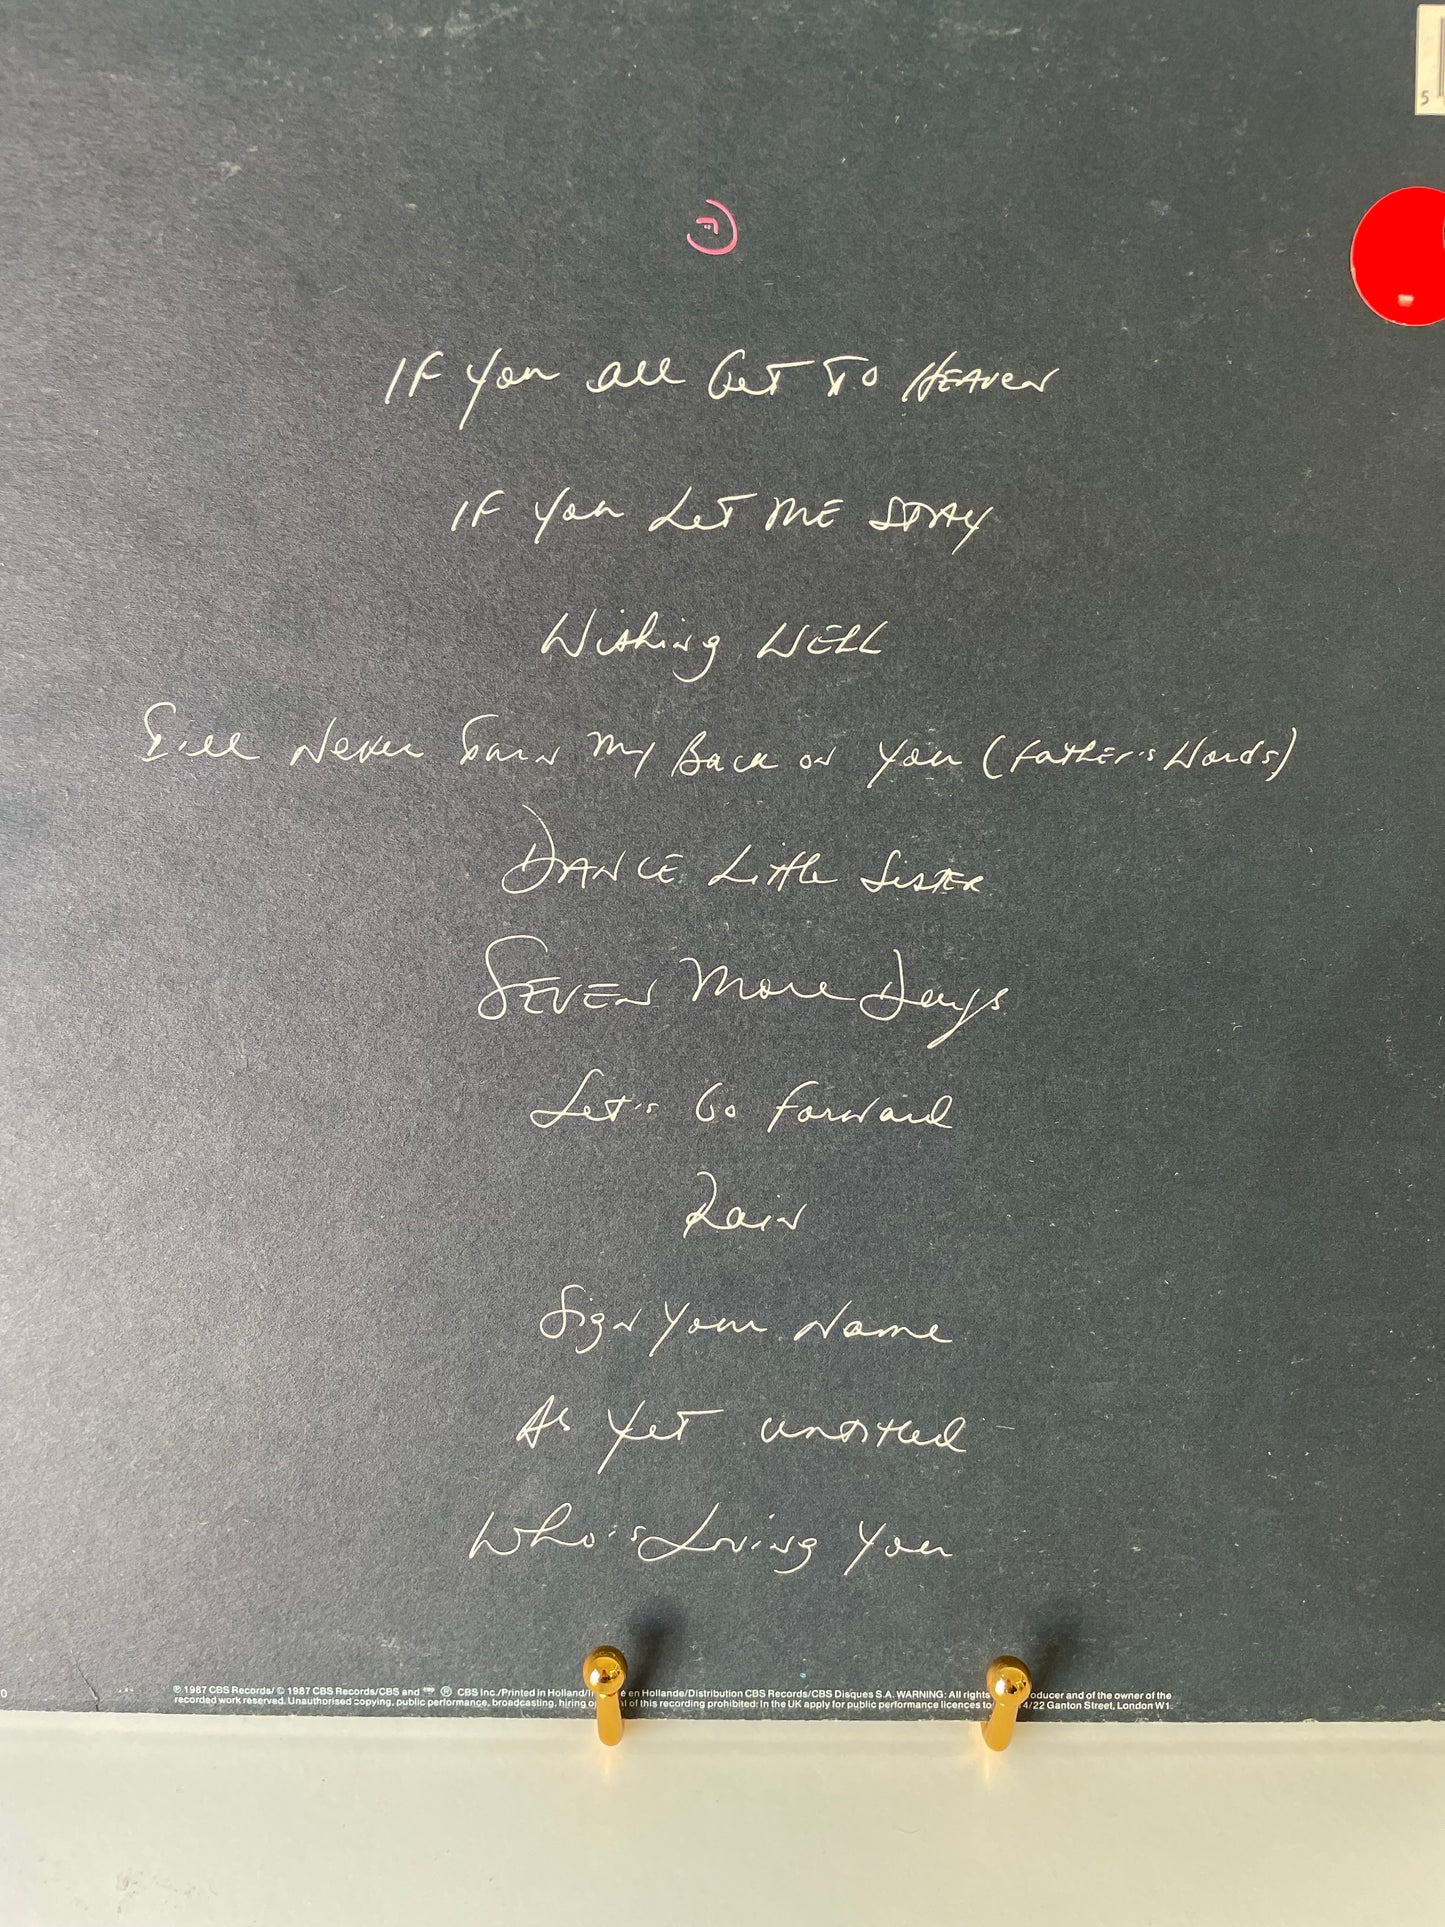 5
IF You All Get To HEAVEN
IF You Let ME STAY
Wishing WELL
I'll Never Turn My Back on You (Father's Words)
DANCE Little SISTER
SEVEN More Days
Let's Go Forward
Rain
Sign Your Name
As Yet Untitled
Who's Loving You
℗ 1987 CBS Records/ © 1987 CBS Records/CBS and ® CBS Inc./Printed in Holland/ é en Hollande/Distribution CBS Records/CBS Disques S.A. WARNING: All rights oducer and of the owner of the
0 recorded work reserved. Unauthorised copying, public performance, broadcasting, hiring of this recording prohibited: In the UK apply for public performance licences to 4/22 Ganton Street, London W1.